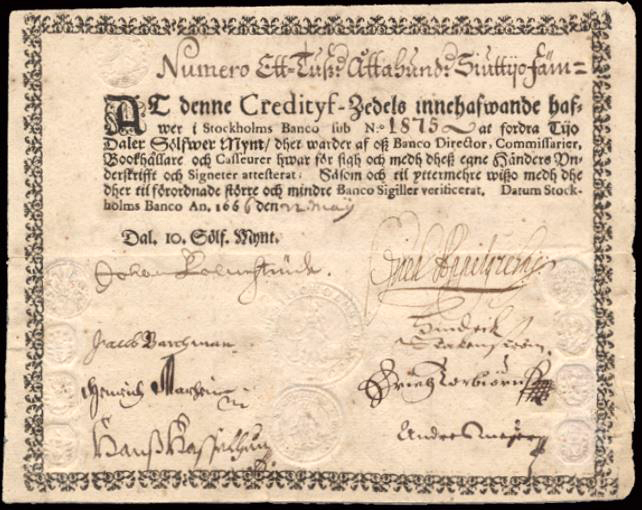 Numero Ett-Tuß: Åttahund: Siuttijo fäm=
AT denne Credityf-Zedels innehafwande haf-
wer i Stockholms Banco sub N:o 1875 at fordra Tijo
Daler Sölfwer Mynt/ dher warder af oß Banco Director, Commissarier,
Bookhållare och Casseurer hwar för sigh och medh dheß egne Händers Vn-
derskrifft och Signeter attesterat: Såsom och til yttermehre wißo medh dhe
dher til förordnade större och mindre Banco Sigiller verificerat. Datum Stock-
holms Banco An. 1666 den 22 Maÿ
Dal. 10. Sölf. Mynt.
Johan Palmstruch.
Jacob Barchman
Hinderik
Hinrich
Hanß
Anders Meijer